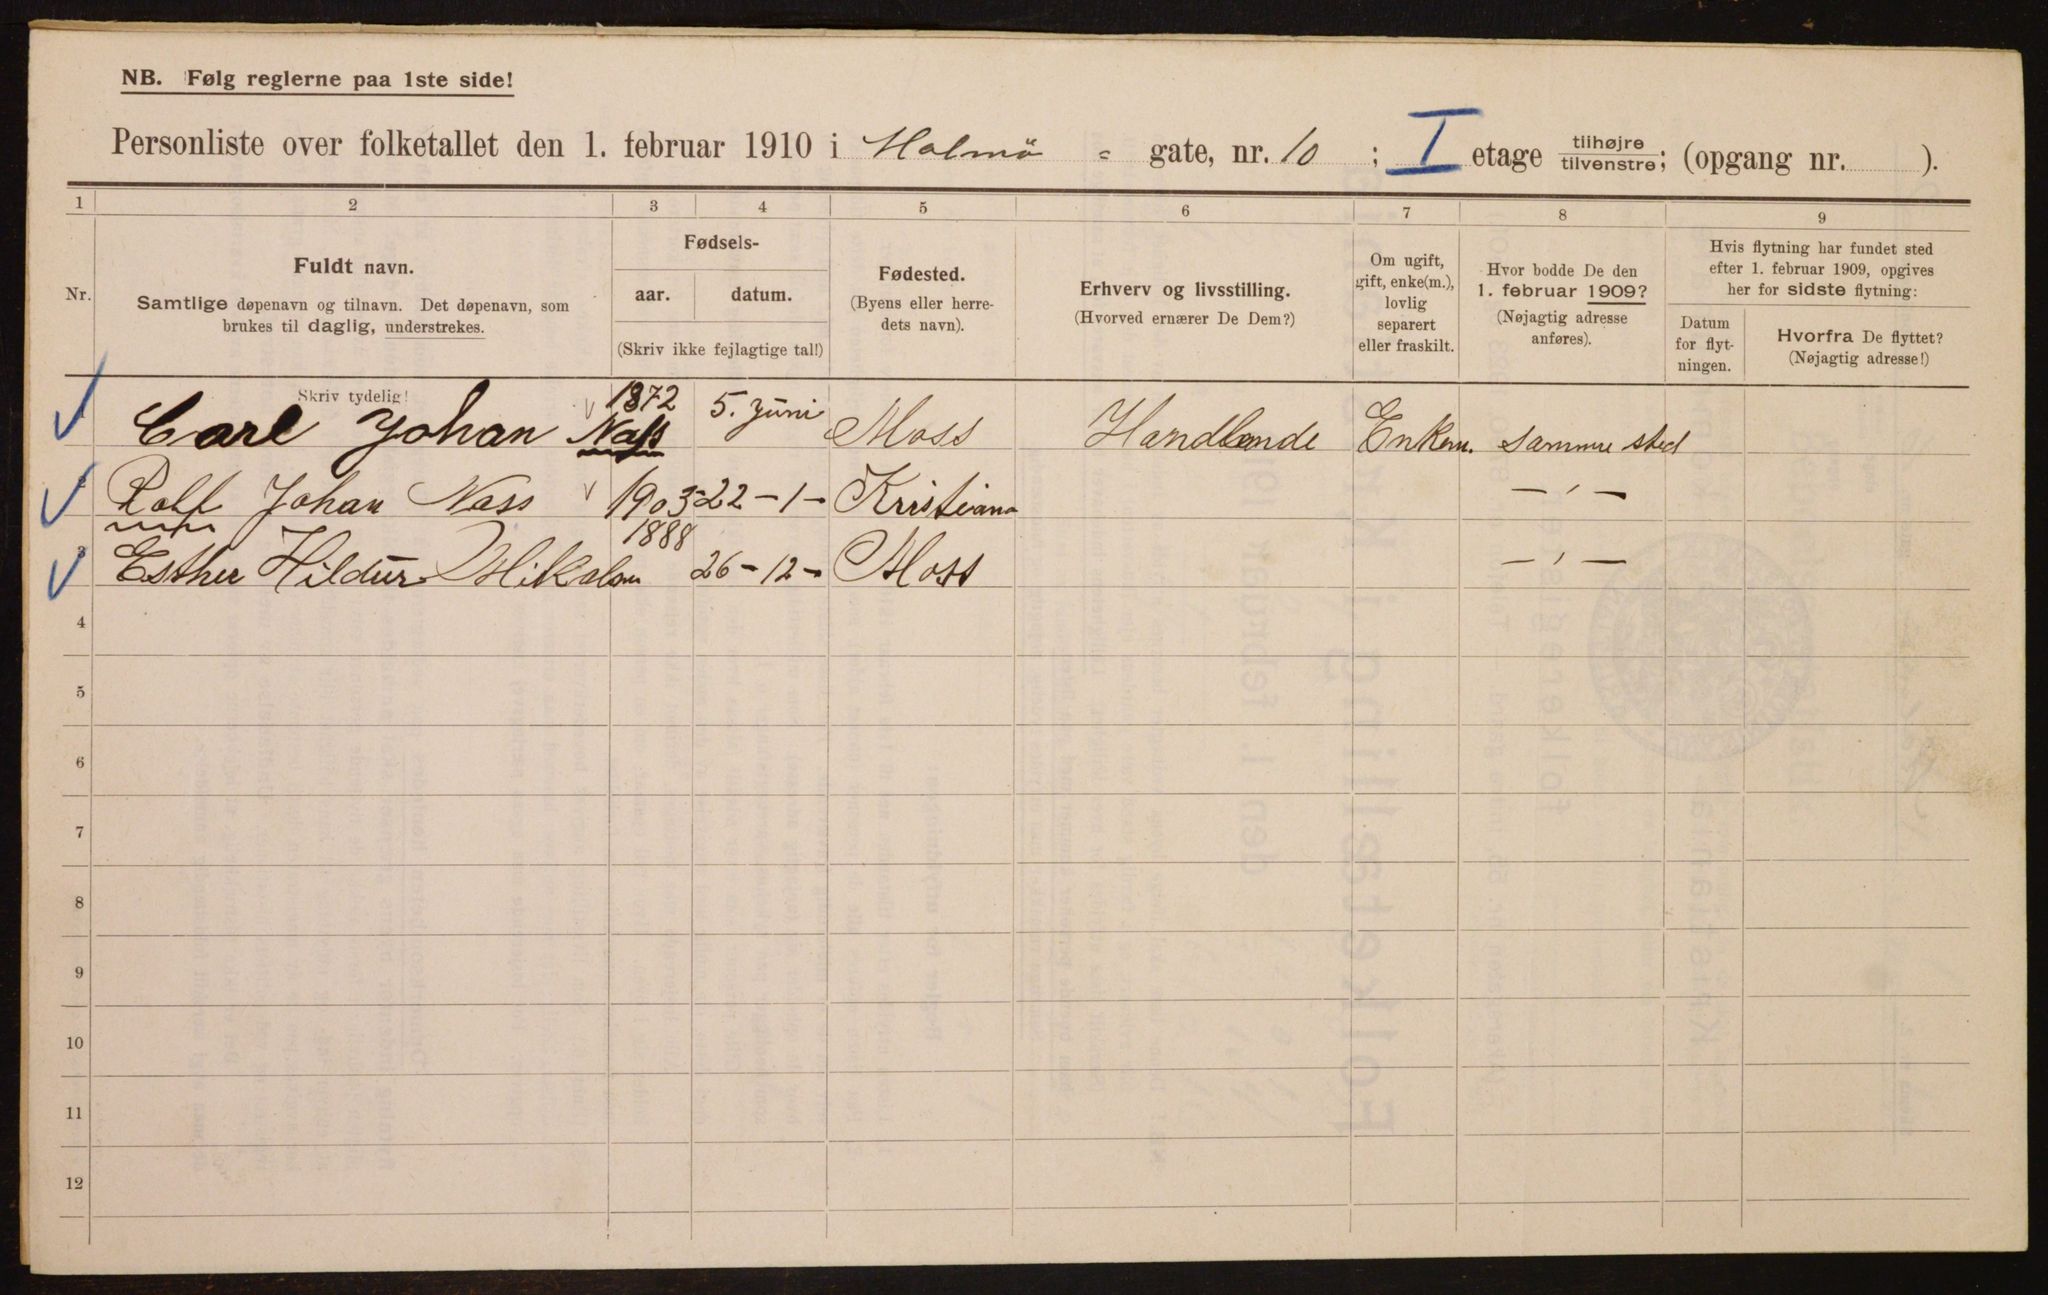 NB. Følg reglerne paa 1ste side!
Personliste over folketallet den 1. februar 1910 i Malmö = gate, nr. 10 ; I etage tilhøjre tilvenstre; (opgang nr. ).
1 2 3 4 5 6 7 8 9
Nr.
Fuldt navn.
Samtlige døpenavn og tilnavn. Det døpenavn, som
brukes til daglig, understrekes.
Fødsels-
aar. datum.
(Skriv ikke fejlagtige tal!)
Fødested.
(Byens eller herre-
dets navn).
Erhverv og livsstilling.
(Hvorved ernærer De Dem?)
Om ugift,
gift, enke(m.),
lovlig
separert
eller fraskilt.
Hvor bodde De den
1. februar 1909?
(Nøjagtig adresse
anføres).
Hvis flytning har fundet sted
efter 1. februar 1909, opgives
her for sidste flytning:
Datum
for flyt-
ningen.
Hvorfra De flyttet?
(Nøjagtig adresse!)
Skriv tydelig!
1 Carl Johan Nass 1872 5. Juni Moss Handlende Enkem. samme sted
2 Rolf Johan Nass 1903 22-1- Kristiana — ' —
3 Esther Hildur Mikalsen 1888 26-12- Moss — ' —
4
5
6
7
8
9
10
11
12